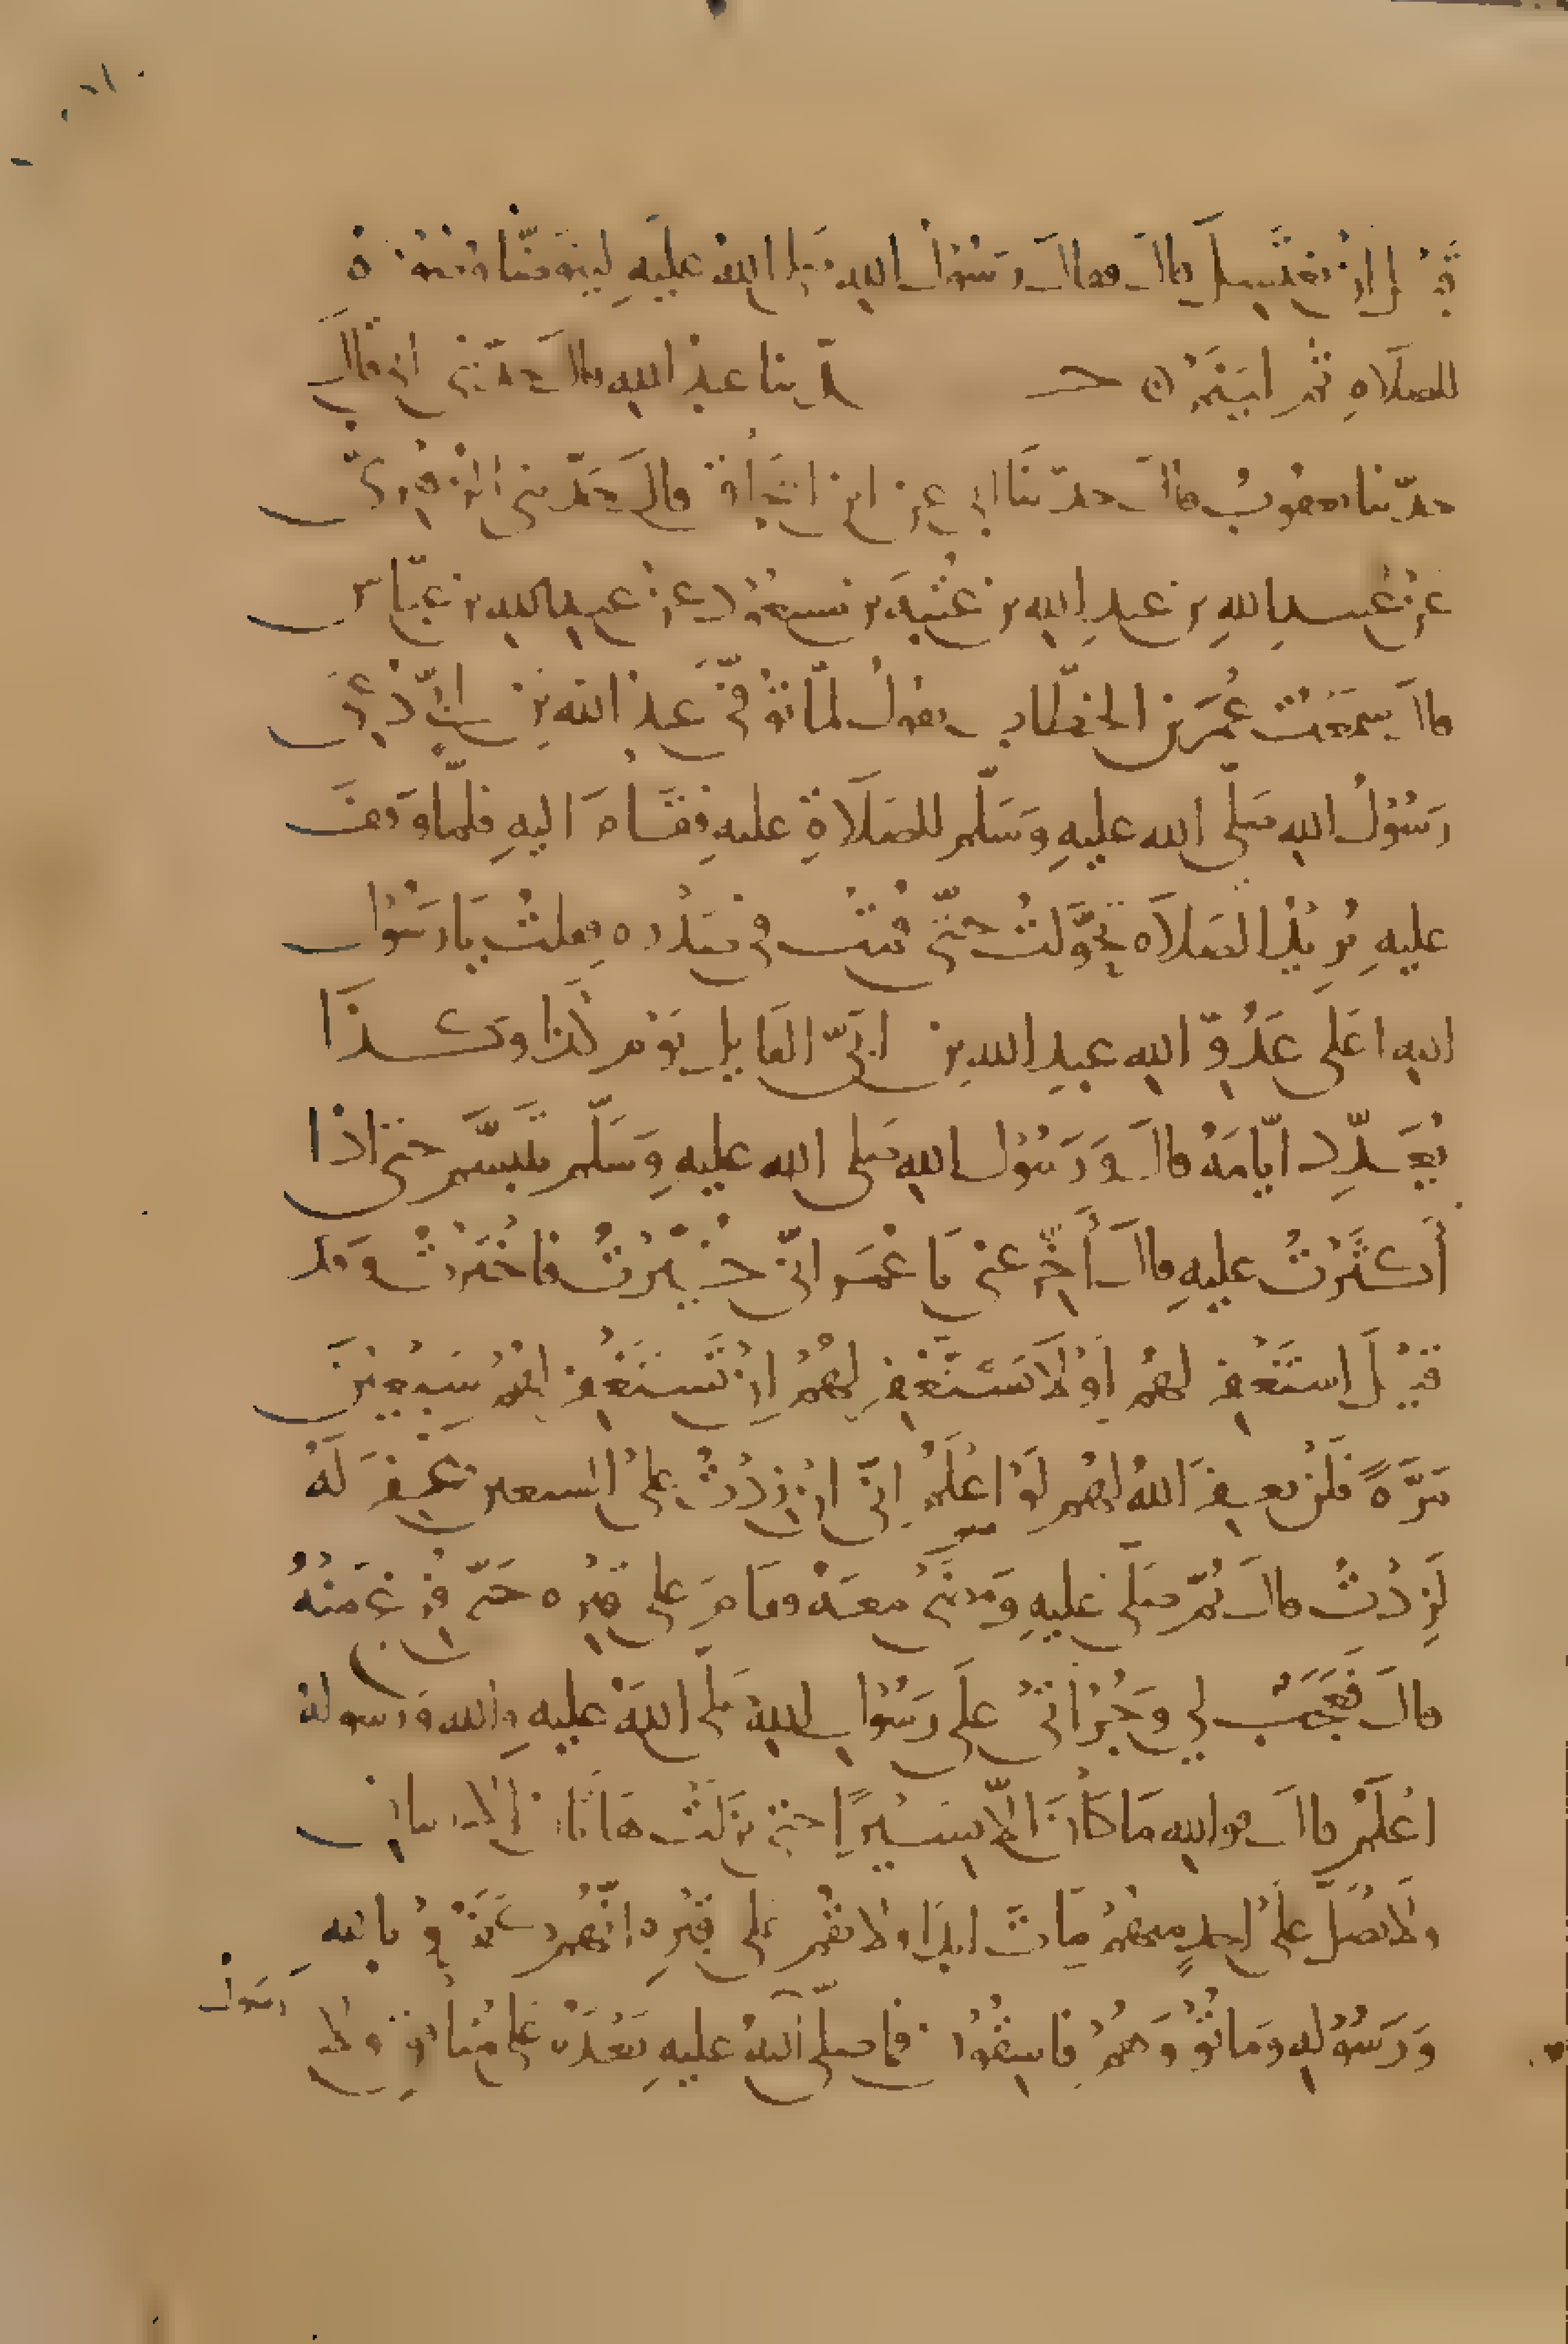 قَبْلَ ان يغتسل قال فقال رسُول الله صلى اللهُ عليهِ ليتوضا وضوه
للصلاةِ ثم لينَمْ حـ دّثنا عبد الله قال حدّثني ابي قال
حدّثنا يعقوبُ قال حدّثنا ابي عن ابن اسحاق قال حَدّثني الزهري
عن عُبيدِ اللهِ بن عبدِ اللهِ بن عُتْبَةَ بن مسعُود عن عبدِ الله بن عبّاس
قال سمعت عُمَرَ بن الخطّاب يقولُ لمّا تُوُفّي عبد الله بن ابيّ دُعِيَ
رَسُوْلُ الله صلّى الله عليهِ وَسَلّم للصَلَاةِ عليهِ فقامَ اليهِ فلمّا وقفَ
عليهِ يُريْدُ الصلاَه تحوَّلتُ حتّى قمتُ في صَدْره فقلتُ يَا رَسُول
اللهِ اعَلى عَدُوّ اللهِ عبدِ الله بن ابَيّ القَايل يَوْم كَذا وكَذَا
يُعَدِّد ايّامَهُ قال وَرَسُوْل الله صلى الله عليهِ وَسَلّم يتبسَّم حتى اذا
أَكثَرْتُ عليهِ قالَ أَخّر عنى يَا عُمَر انّى خُيّرْتُ فاخْتَرْتُ وَقد
قيْلَ استَغْفِر لهُم أوْ لاَ تَسْتَغْفِر لهُمْ اِنْ تَستَغْفِر لهُمْ سَبْعِيْنَ
مَرّةً فَلَنْ يغفِرَ اللهُ لهُم لَوْ اعْلَمُ اِنّى ان زِدْتُ على السبعين غُفِرَ لَهُ
لَزِدْتُ قالَ ثمّ صَلّى عَليهِ وَمشَى معَهُ وقامَ على قَبْرِه حَتّى فُرغَ مِنْهُ
قالَ فعَجَبٌ لي وَجُرْاتى عَلى رَسُول اللهِ صَلّى اللهُ عليهِ والله وَرَسولهُ
اعْلَمُ قال فوالله مَا كَانَ الّا يسيْرًا حتى نزَلَتْ هَاتَان الايتان
ولَا تُصَلّ عَلىَ احدٍ منهم مَاتَ ابدًا ولا تقُم عَلى قَبْرِه انّهُم كَفَرُوْا بالله
وَرَسُوْلِه وَمَاتُوْا وَهُمْ فاسِقُوْن فما صلّى اللهُ عليهِ بَعْدَهُ على مُنافِقٍ ولا
رَسُول